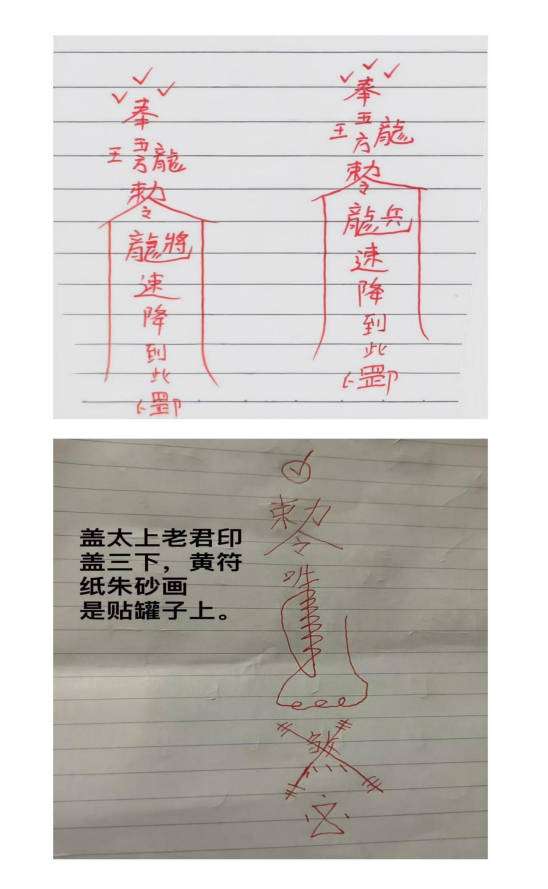 奉
五方
王龍
勅令
龍將
速
降
到
此
罡
奉
五方
王龍
勅令
龍兵
速
降
到
此
罡
勅令
煞
盖太上老君印
盖三下，黄符
纸朱砂画
是贴罐子上。